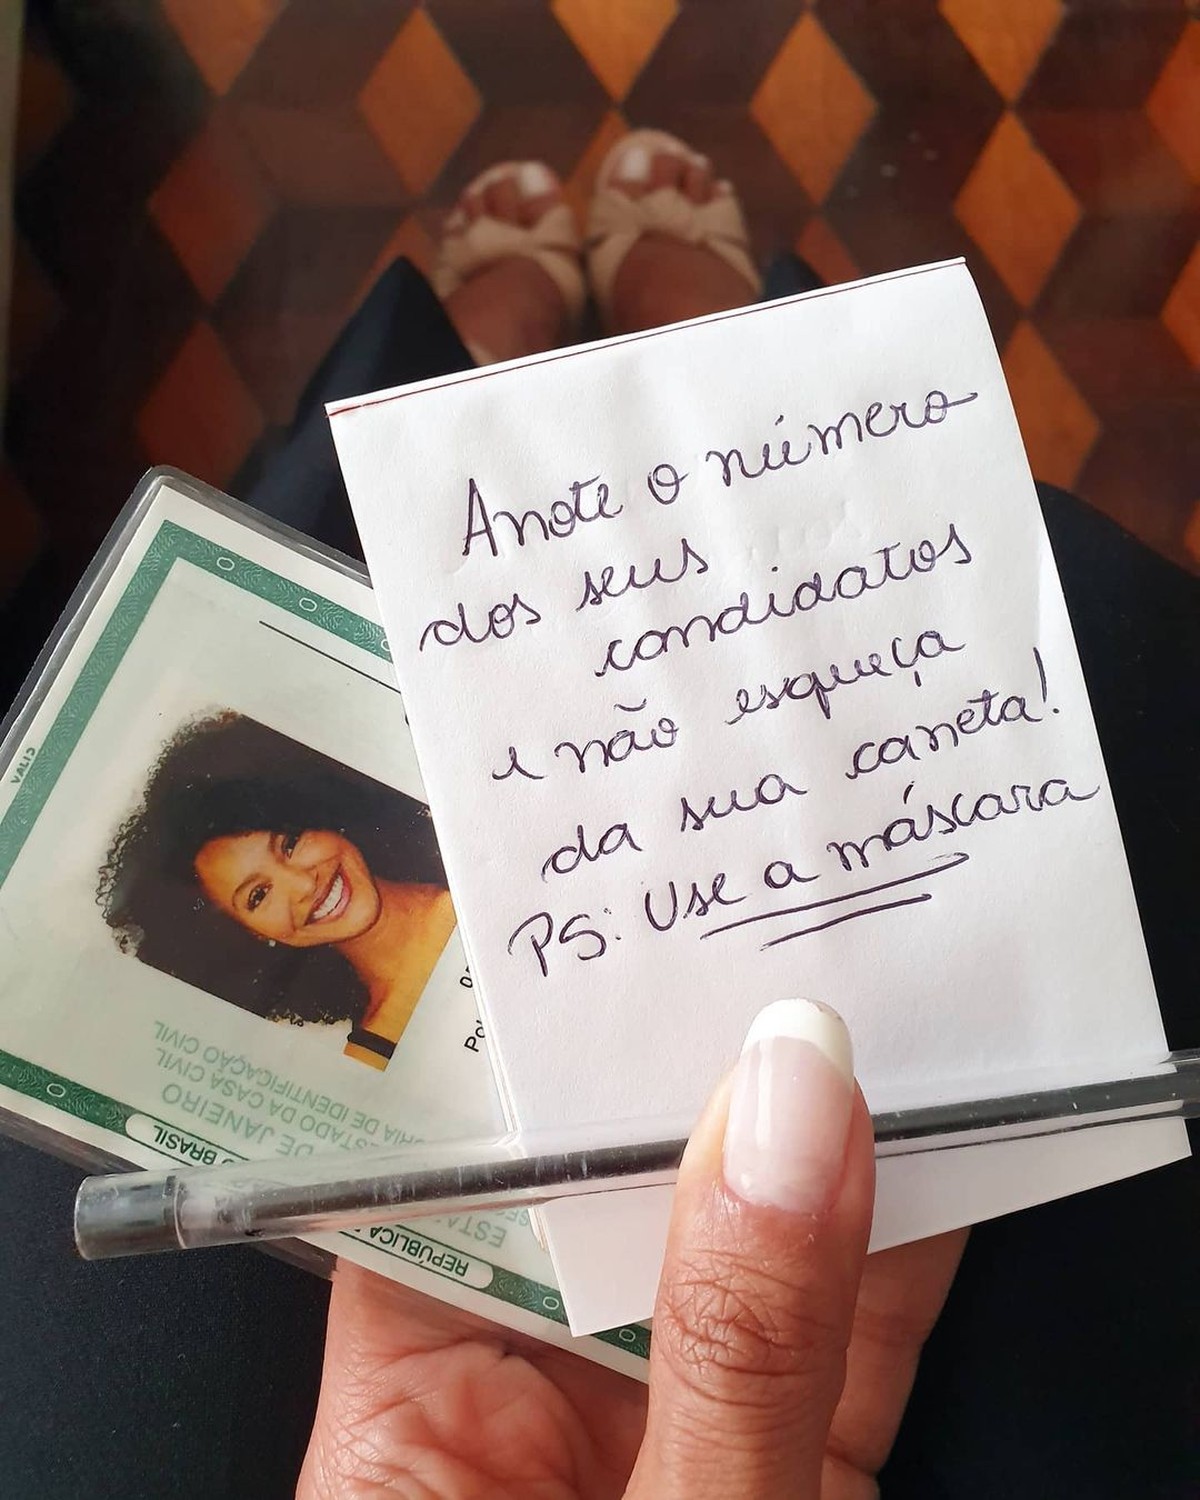 Anote o número
dos seus
candidatos
e não esqueça
da sua caneta!
PS: Use a máscara
VALID
REPÚBLICA
BRASIL
ESTA
DE JANEIRO
ESTADO DA CASA CIVIL
RIA DE IDENTIFICAÇÃO CIVIL
Pol